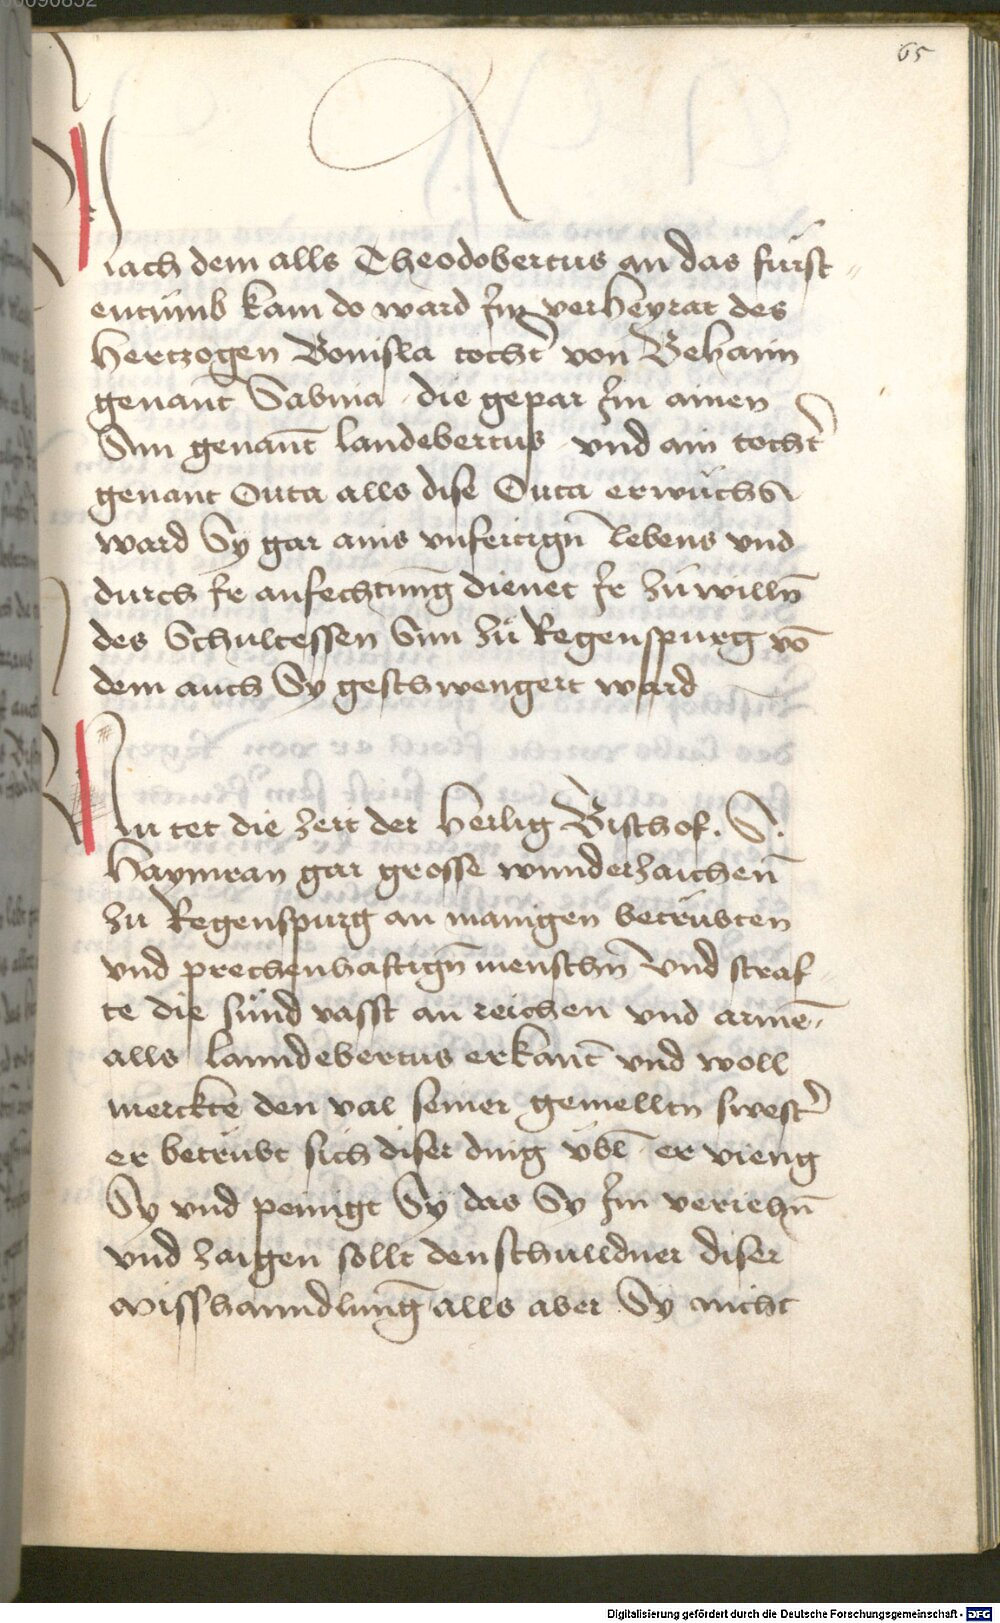 65
Nach dem alls Theodobertus an das fürst-
entumb kam do ward Im verheyrat des
hertzogen Bonisla tocht̄ von Behaim
genañt Sabina die gepar Im ainen
Sun genañt landebertus vnd ain tocht̄
genant Outa alls dise Outa erwuchs
ward Sy gar ains vnfertign̄ lebens vnd
durch Ir anfechtung dienet Ir zů willn̄
des Schultessen Sun zů Regenspurg vō
dem auch Sy geschwengert ward
Nu tet die zeit der heilig Bischof. S.
haymran gar grosse wunderzaichen̄
zu Regenspurg an manigen betrübten
vnd prechenhaftign̄ menschn̄ Vnd straf-
te die sünd vasst an reichen vnd armē
alls lanndebertus erkañt vnd woll
merckte den val seiner gemellten swest̄
er betrübt sich diser ding übl̄ er vieng
Sy vnd peinigt Sy das Sy Im veriehn̄
vnd zaigen sollt den schulldner diser
misshanndlung alls aber Sy nicht
Digitalisierung gefördert durch die Deutsche Forschungsgemeinschaft - DFG